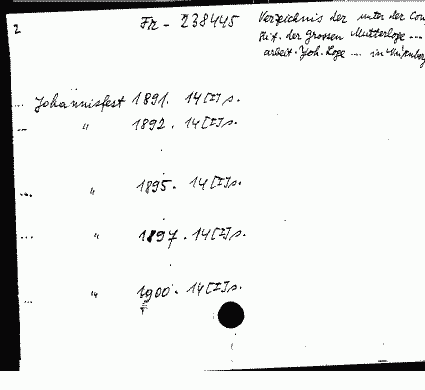 2
Fr - 238445
Verzeichnis der unter der Con
Hit. der grossen Mutterloge ...
arbeit. Joh. Loge ... in Nürnberg
... Johannisfest 1891. 14 [I] s.
... " 1892. 14 [I] s.
... " 1895. 14 [I] s.
... " 1897. 14 [I] s.
... " 1900. 14 [I] s.